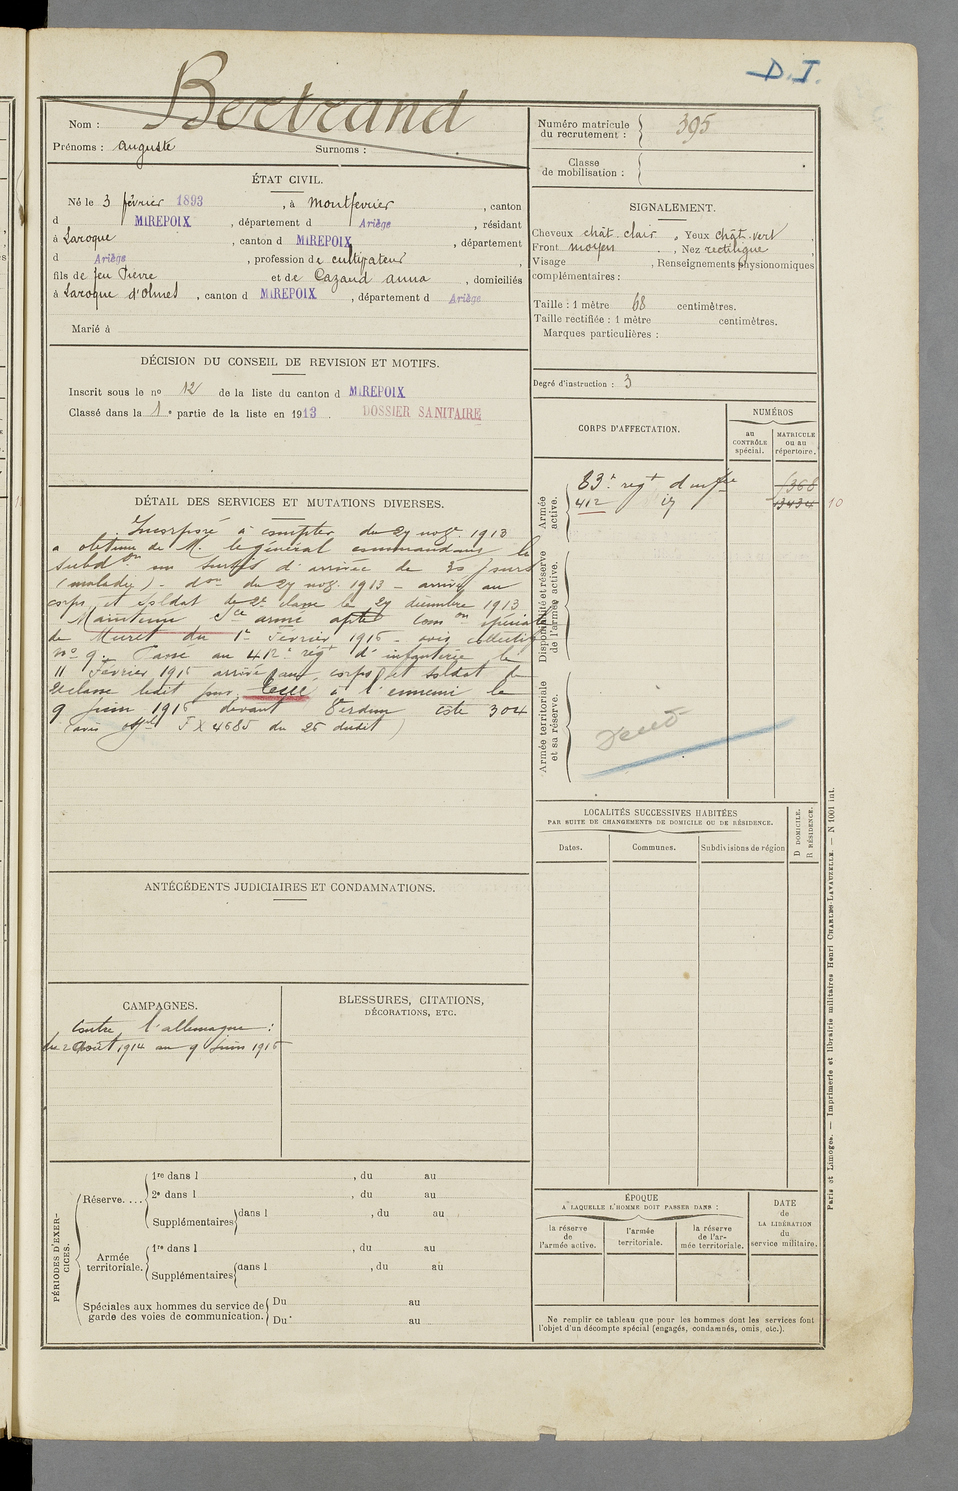 D.I.
Bertrand
Nom :
Prénoms : Auguste Surnoms :
ÉTAT CIVIL.
Né le 3 février 1893, à Montferrier, canton
d MIREPOIX, département d Ariège, résidant
à Laroque, canton d MIREPOIX, département
d Ariège, profession de cultivateur,
fils de feu Pierre et de Cazaud anna, domiciliés
à Laroque d'Olmes, canton d MIREPOIX, département d Ariège
Marié à
DÉCISION DU CONSEIL DE REVISION ET MOTIFS.
Inscrit sous le nº 12 de la liste du canton d MIREPOIX
Classé dans la 1e partie de la liste en 1913. DOSSIER SANITAIRE
DÉTAIL DES SERVICES ET MUTATIONS DIVERSES.
Incorporé à compter du 27 nov. 1913
a obtenu de M. le général commandant la
subdon un sursis d'arrivée de 30 jours
(maladie). - don du 27 nov. 1913 - arrivé au
corps et soldat de 2e classe le 27 décembre 1913
Maintenu Sce armé Comon spéciale
de Muret du 1er Février 1915 - avis collectif
nº 9. Passé au 412e régt d'infanterie le
11 Février 1915 arrivé au corps et soldat de
2e classe ledit jour. Tué à l'ennemi le
9 juin 1916 devant Verdun côte 304
(avis offel F X 4685 du 26 dudit)
ANTÉCÉDENTS JUDICIAIRES ET CONDAMNATIONS.
CAMPAGNES.
Contre l'allemagne :
du 2 Août 1914 au 9 juin 1916
BLESSURES, CITATIONS,
DÉCORATIONS, ETC.
PÉRIODES D'EXERCICES.
Réserve....
1re dans l , du au
2e dans l , du au
Supplémentaires dans l , du au
Armée territoriale.
1re dans l , du au
Supplémentaires dans l , du au
Spéciales aux hommes du service de
garde des voies de communication.
Du au
Du au
Numéro matricule
du recrutement : 395
Classe
de mobilisation :
SIGNALEMENT.
Cheveux chât. clair. Yeux chât-vert
Front moyen, Nez rectiligne
Visage , Renseignements physionomiques
complémentaires :
Taille : 1 mètre 68 centimètres.
Taille rectifiée : 1 mètre centimètres.
Marques particulières :
Degré d'instruction : 3
CORPS D'AFFECTATION.
NUMÉROS
au
CONTRÔLE
spécial.
MATRICULE
ou au
répertoire.
Armée
active.
83e regt d'infie 1368
412 id 13434 10
Disponibilité et réserve
de l'armée active.
Armée territoriale
et sa réserve.
LOCALITÉS SUCCESSIVES HABITÉES
PAR SUITE DE CHANGEMENTS DE DOMICILE OU DE RÉSIDENCE.
Dates.
Communes.
Subdivisions de région
D DOMICILE.
R RÉSIDENCE.
ÉPOQUE
A LAQUELLE L'HOMME DOIT PASSER DANS :
la réserve
de
l'armée active.
l'armée
territoriale.
la réserve
de l'ar-
mée territoriale.
DATE
de
LA LIBÉRATION
du
service militaire.
Ne remplir ce tableau que pour les hommes dont les services font
l'objet d'un décompte spécial (engagés, condamnés, omis, etc.).
Paris et Limoges. — Imprimerie et librairie militaires Henri CHARLES-LAVAUZELLE. — N 1001 int.